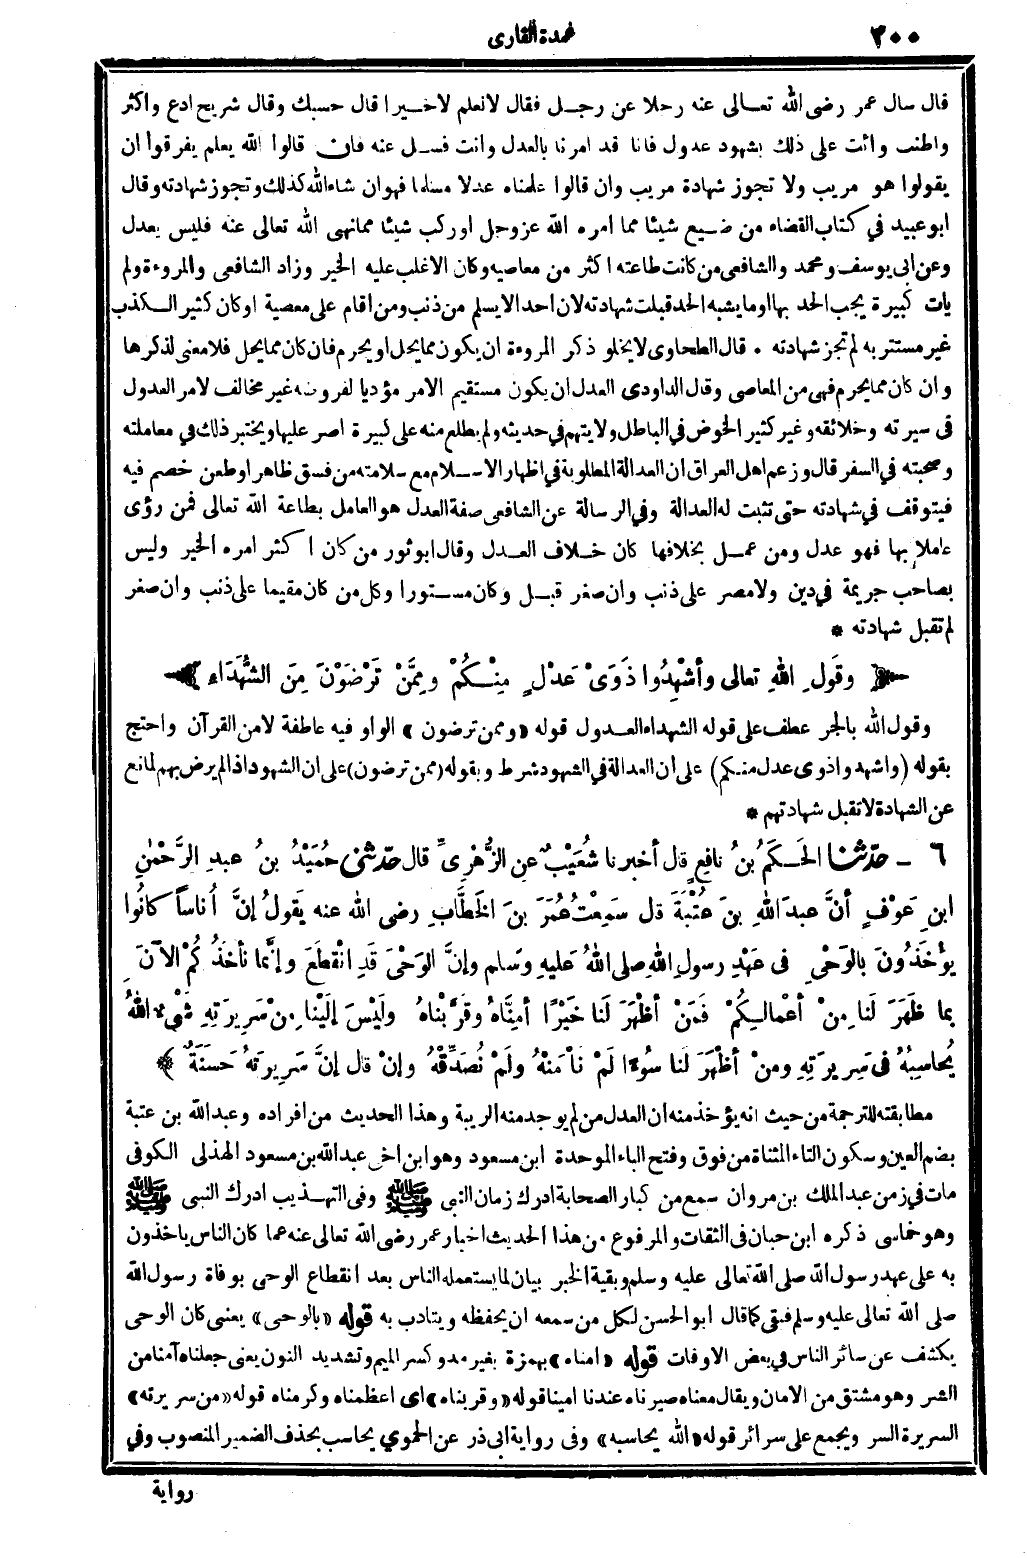 ٢٠٠
عمدة القارى
قال سال عمر رضى الله تعالى عنه رجلا عن رجل فقال لانعلم لاخيرا قال حسبك وقال شريح ادع واكثر
واطنب وائت على ذلك بشهود عدول فانا قد امرنا بالعدل وانت فسل عنه فان قالوا الله يعلم يفرقوا ان
يقولوا هو مريب ولا تجوز شهادة مريب وان قالوا علمناه عدلا مسلما فهوان شاءالله كذلك وتجوز شهادته وقال
ابوعبيد في كتاب القضاء من ضيع شيئا مما امره الله عزوجل اوركب شيئا ممانهى الله تعالى عنه فليس بعدل
وعن ابى يوسف ومحمد والشافعى من كانت طاعته اكثر من معاصيه وكان الاغلب عليه الخير وزاد الشافعى والمروءة ولم
يات كبيرة يجب الحد بها اومايشبه الحد قبلت شهادته لان احدا لايسلم من ذنب ومن اقام على معصية اوكان كثير الكذب
غير مستتر به لم تجز شهادته • قال الطحاوى لايخلو ذكر المروءة ان يكون ممايحل اويحرم فان كان ممايحل فلامعنى لذكرها
وان كان ممايحرم فهى من المعاصى وقال الداودى العدل ان يكون مستقيم الامر مؤديا لفروضه غير مخالف لامر العدول
فى سيرته وخلائقه وغير كثير الخوض في الباطل ولايتهم في حديثه ولم يطلع منه على كبيرة اصر عليها ويختبر ذلك في معاملته
وصحبته في السفر قال وزعم اهل العراق ان العدالة المطلوبة في اظهار الاسلام مع سلامته من فسق ظاهر اوطعن خصم فيه
فيتوقف في شهادته حتى تثبت له العدالة وفي الرسالة عن الشافعى صفة العدل هو العامل بطاعة الله تعالى فمن رؤى
عاملا بها فهو عدل ومن عمل بخلافها كان خلاف العدل وقال ابوثور من كان اكثر امره الخير وليس
بصاحب جريمة في دين ولا مصر على ذنب وان صغر قبل وكان مستورا وكل من كان مقيما على ذنب وان صغر
لم تقبل شهادته *
﴿ وقَولِ اللهِ تعالى وأشْهِدُوا ذَوَىْ عَدْلٍ مِنْكُمْ ومِمَّنْ تَرْضَوْنَ مِنَ الشُّهَدَاءِ ﴾
وقول الله بالجر عطف على قوله الشهداء العدول قوله «وممن ترضون» الواو فيه عاطفة لامن القرآن واحتج
بقوله (واشهدواذوى عدل منكم) على ان العدالة في الشهود شرط وبقوله (ممن ترضون) على ان الشهود اذا لم يرض بهم لمانع
عن الشهادة لاتقبل شهادتهم *
٦ - حدّثنا الحَكَمُ بنُ نافِعٍ قال أخبرنا شُعَيْبٌ عنِ الزُّهْرِىِّ قال حدّثنى حُمَيْدُ بنُ عبدِ الرَّحْمٰنِ
ابنِ عَوْفٍ أنَّ عبدَ اللهِ بنَ عُتْبَةَ قال سَمِعْتُ عُمَرَ بنَ الخَطَّابِ رضى الله عنه يَقولُ إنَّ أُناساً كانُوا
يؤْخَذُونَ بالوَحْىِ فى عَهْدِ رسولِ اللهِ صلى اللهُ عَليهِ وسَلم وإنَّ الوَحْىَ قَدِ انْقَطَعَ وإنَّما نأخُذُكُمُ الآنَ
بِما ظَهَرَ لَنا مِنْ أعْمالِكُمْ فَمَنْ أظْهَرَ لَنا خَيْرًا أمِنَّاهُ وقَرَّبْناهُ ولَيْسَ إلَيْنا مِنْ سَرِيرَتِهِ شَىْءٌ اللهُ
يُحاسِبُهُ فى سَرِيرَتِهِ ومنْ أظْهَرَ لَنا سُوءًا لَمْ نأْمَنْهُ ولَمْ نُصَدِّقْهُ وإنْ قال إنَّ سَرِيرَتَهُ حَسَنَةٌ ﴾
مطابقته للترجمة من حيث انه يؤخذ منه ان العدل من لم يوجد منه الريبة وهذا الحديث من افراده وعبدالله بن عتبة
بضم العين وسكون التاء المثناة من فوق وفتح الباء الموحدة ابن مسعود وهو ابن اخى عبدالله بن مسعود الهذلى الكوفى
مات في زمن عبد الملك بن مروان سمع من كبار الصحابة ادرك زمان النبى ﷺ وفى التهذيب ادرك النبى ﷺ
وهو خماسى ذكره ابن حبان فى الثقات والمرفوع من هذا الحديث اخبار عمر رضى الله تعالى عنه عما كان الناس ياخذون
به على عهد رسول الله صلى الله تعالى عليه وسلم وبقية الخبر بيان لما يستعمله الناس بعد انقطاع الوحى بوفاة رسول الله
صلى الله تعالى عليه وسلم فبقى كما قال ابوالحسن لكل من سمعه ان يحفظه ويتادب به قوله «بالوحى» يعنى كان الوحى
يكشف عن سائر الناس في بعض الاوقات قوله «امناه» بهمزة بغير مد وكسر الميم وتشديد النون يعنى جعلناه آمنا من
الشر وهو مشتق من الامان ويقال معناه صيرناه عندنا امينا قوله «وقربناه» اى اعظمناه وكرمناه قوله «من سريرته»
السريرة السر ويجمع على سرائر قوله «الله يحاسبه» وفى رواية ابى ذر عن الحموي يحاسب بحذف الضمير المنصوب وفي
رواية